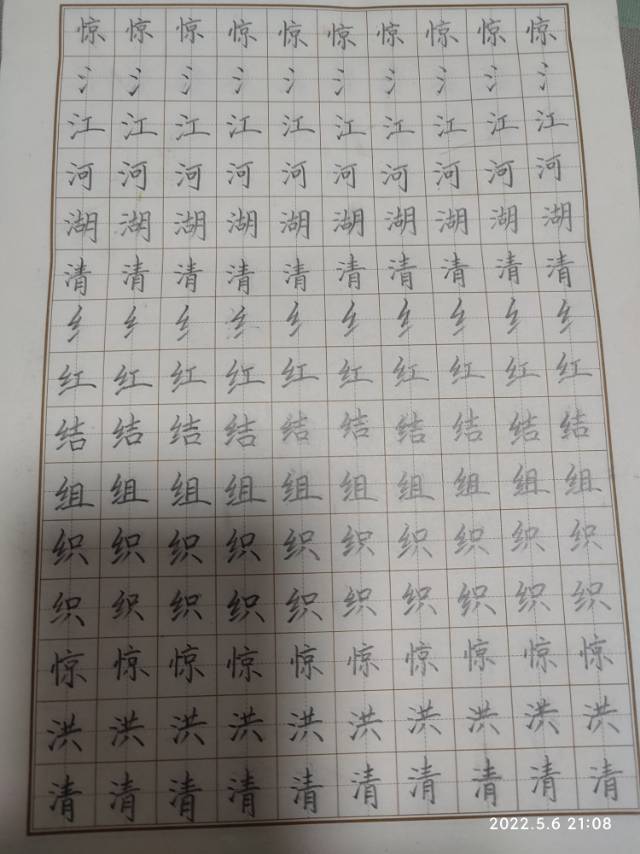 惊惊惊惊惊惊惊惊惊惊
氵氵氵氵氵氵氵氵氵氵
江江江江江江江江江江
河河河河河河河河河河
湖湖湖湖湖湖湖湖湖湖
清清清清清清清清清清
纟纟纟纟纟纟纟纟纟纟
红红红红红红红红红红
结结结结结结结结结结
组组组组组组组组组组
织织织织织织织织织织
织织织织织织织织织织
惊惊惊惊惊惊惊惊惊惊
洪洪洪洪洪洪洪洪洪洪
清清清清清清清清清清
2022.5.6 21:08